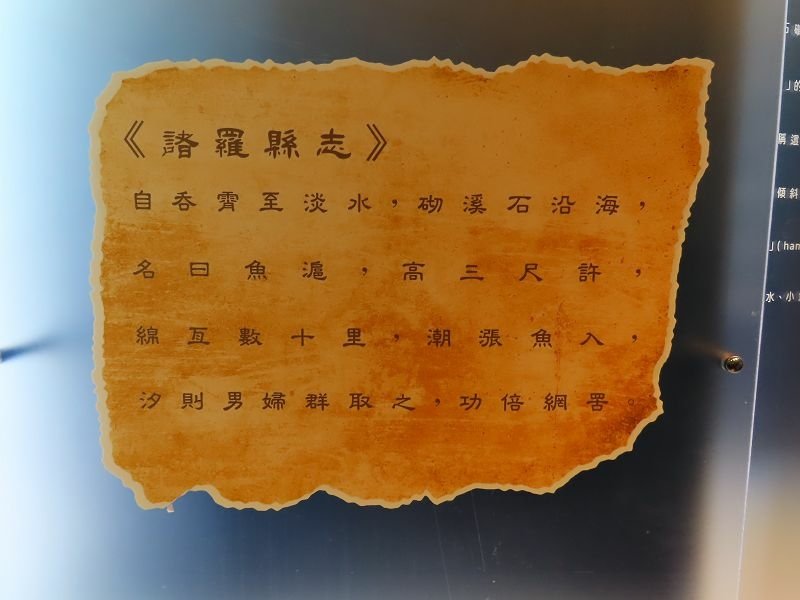 《諸羅縣志》
自吞霄至淡水，砌溪石沿海，
名曰魚滬，高三尺許，
綿亙數十里，潮漲魚入，
汐則男婦群取之，功倍網罟。
」的
傾斜
」(han
水、小